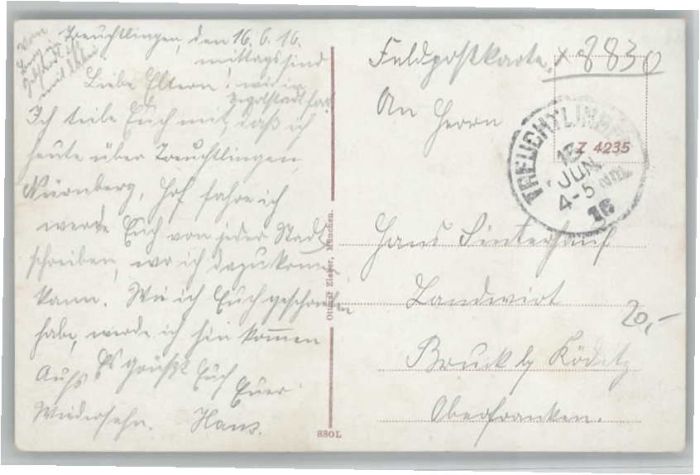 Treuchtlingen, den 16.6.16.
mittags sind
Liebe Eltern! wird in
Ich teile Euch mit, daß ich
heute über Treuchtlingen,
Nürnberg, Hof fahre ich
werde Euch von jeder Stadt
schreiben, wo ich dazu komm
kann. Wie ich Euch geschrieben
habe, werde ich hin kommen
Es grüßt Euch Euer
Aufs
Wiedersehn. Hans.
Ottmar Zieher, München.
880L
Feldpostkarte. x 8830
An Herrn
TREUCHTLINGEN
16
JUN.
4-5 NM.
16
Z 4235
Hans Hinterhauf
Landwirt
20,-
Bruck b/ Köditz
Oberfranken.